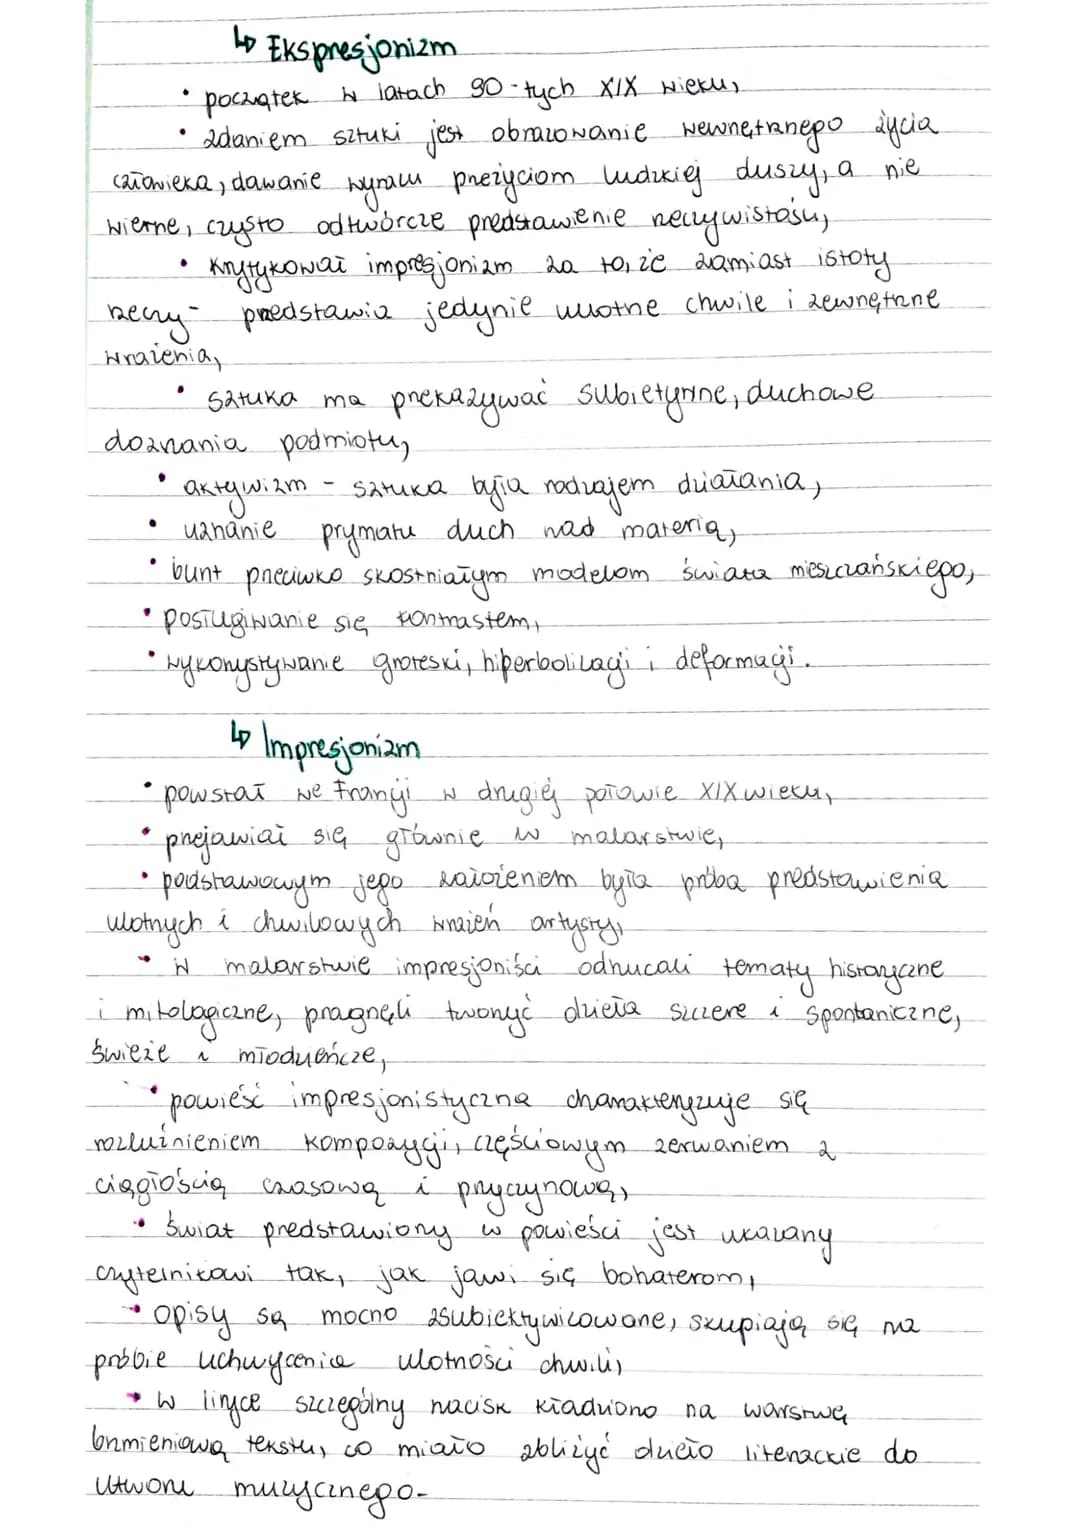 ↳ Ekspresjonizm
• początek w latach 90-tych XIX wieku,
• zdaniem sztuki jest obrazowanie wewnętrznego życia
człowieka, dawanie wyrazu przeżyciom ludzkiej duszy, a nie
wierne, czysto odtwórcze przedstawienie rzeczywistości,
• krytykował impresjonizm za to, że zamiast istoty
rzeczy - przedstawia jedynie ulotne chwile i zewnętrzne
wrażenia,
• sztuka ma przekazywać subietywne, duchowe
doznania podmiotu,
• aktywizm - sztuka była rodzajem działania,
• uznanie prymatu duch nad materią,
• bunt przeciwko skostniałym modelom świata mieszczańskiego,
• posługiwanie się kontrastem,
• wykorzystywanie groteski, hiperbolizacji i deformacji.
↳ Impresjonizm
• powstał we Francji w drugiej połowie XIX wieku,
• przejawiał się głównie w malarstwie,
• podstawowym jego założeniem była próba przedstawienia
ulotnych i chwilowych wrażeń artysty,
• W malarstwie impresjoniści odrzucali tematy historyczne
i mitologiczne, pragnęli tworzyć dzieła szczere i spontaniczne,
świeże i młodzieńcze,
• powieść impresjonistyczna charakteryzuje się
rozluźnieniem kompozycji, częściowym zerwaniem z
ciągłością czasową i przyczynową,
• świat przedstawiony w powieści jest ukazany
czytelnikowi tak, jak jawi się bohaterom,
• opisy są mocno zsubiektywizowane, skupiają się na
próbie uchwycenia ulotności chwili,
• W liryce szczególny nacisk kładziono na warstwę
brzmieniową tekstu, co miało zbliżyć dzieło literackie do
utworu muzycznego.